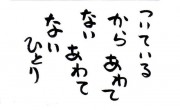 ついている
からあわて
ないあわて
ない
ひとり